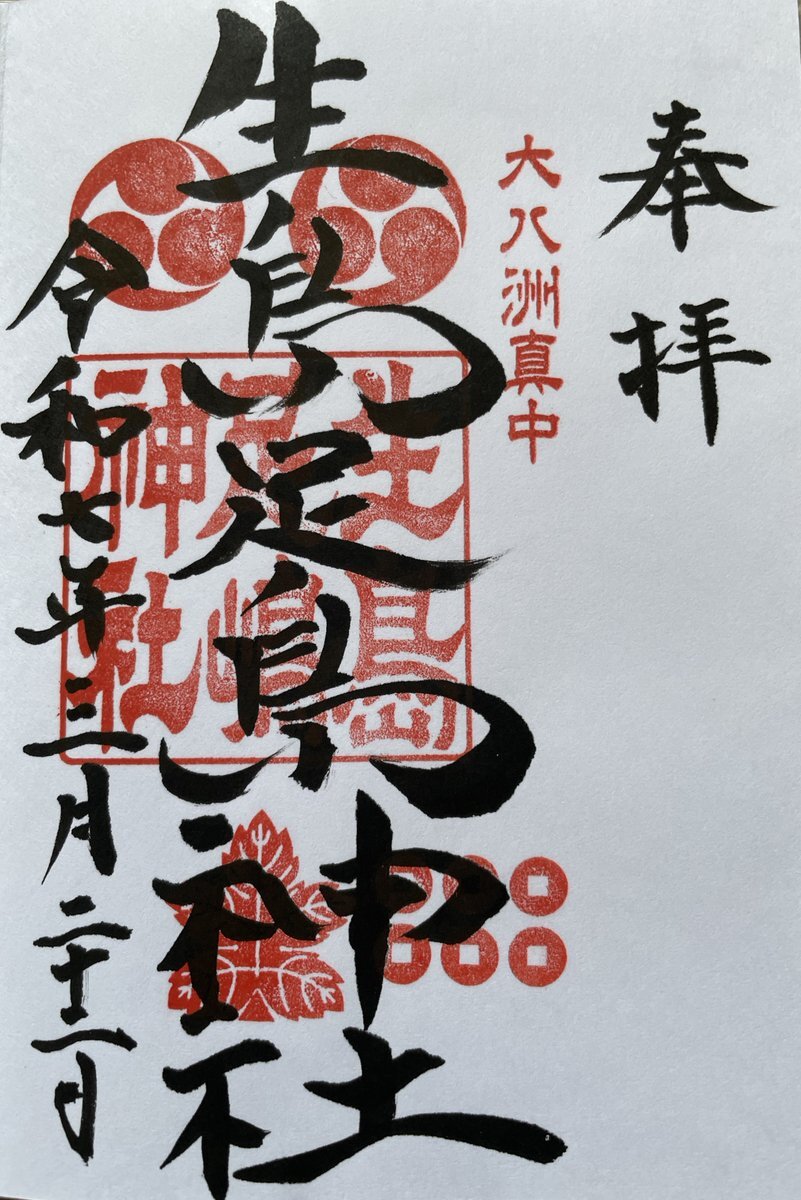 奉拝
大八洲真中
生島足島神社
生島
足嶋
神社
令和七年三月二十二日